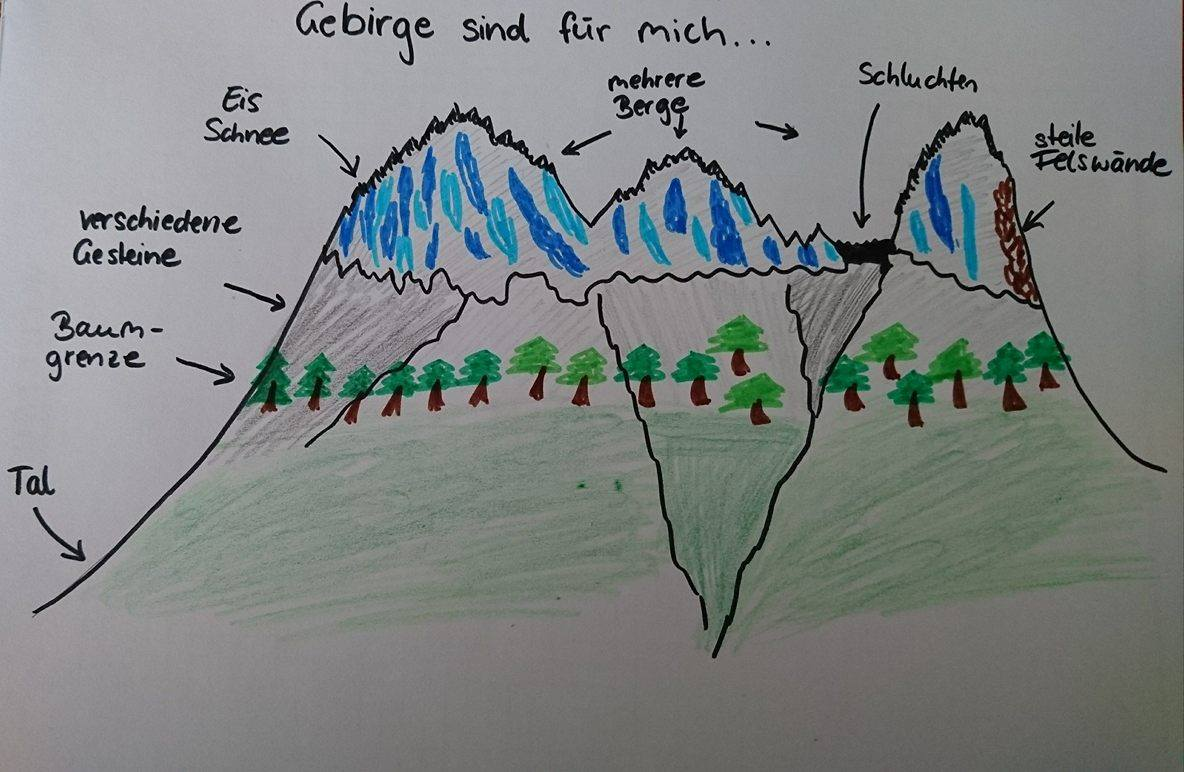 Gebirge sind für mich...
mehrere
Berge
Schluchten
Eis
Schnee
steile
Felswände
verschiedene
Gesteine
Baum-
grenze
Tal